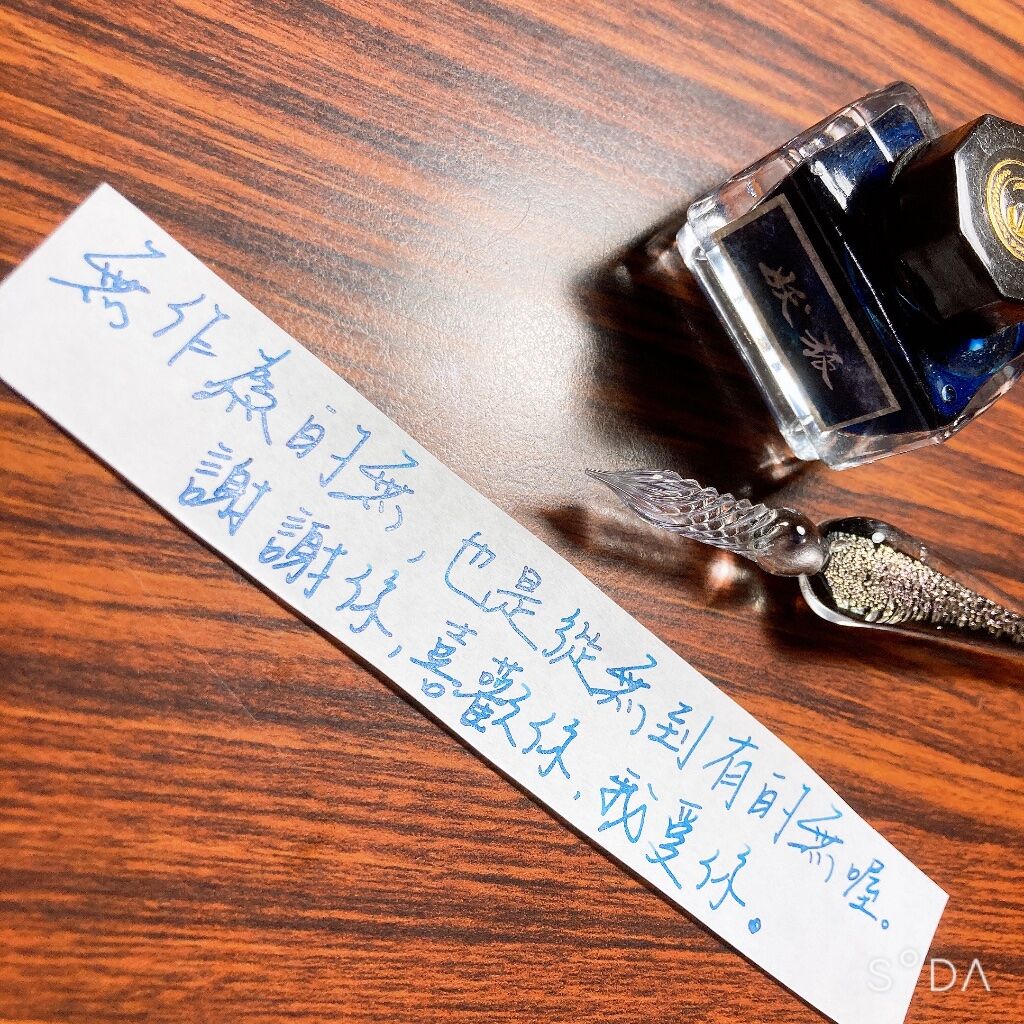 無作為的無，也是從無到有的無喔。
謝謝你，喜歡你，我愛你。
SODA